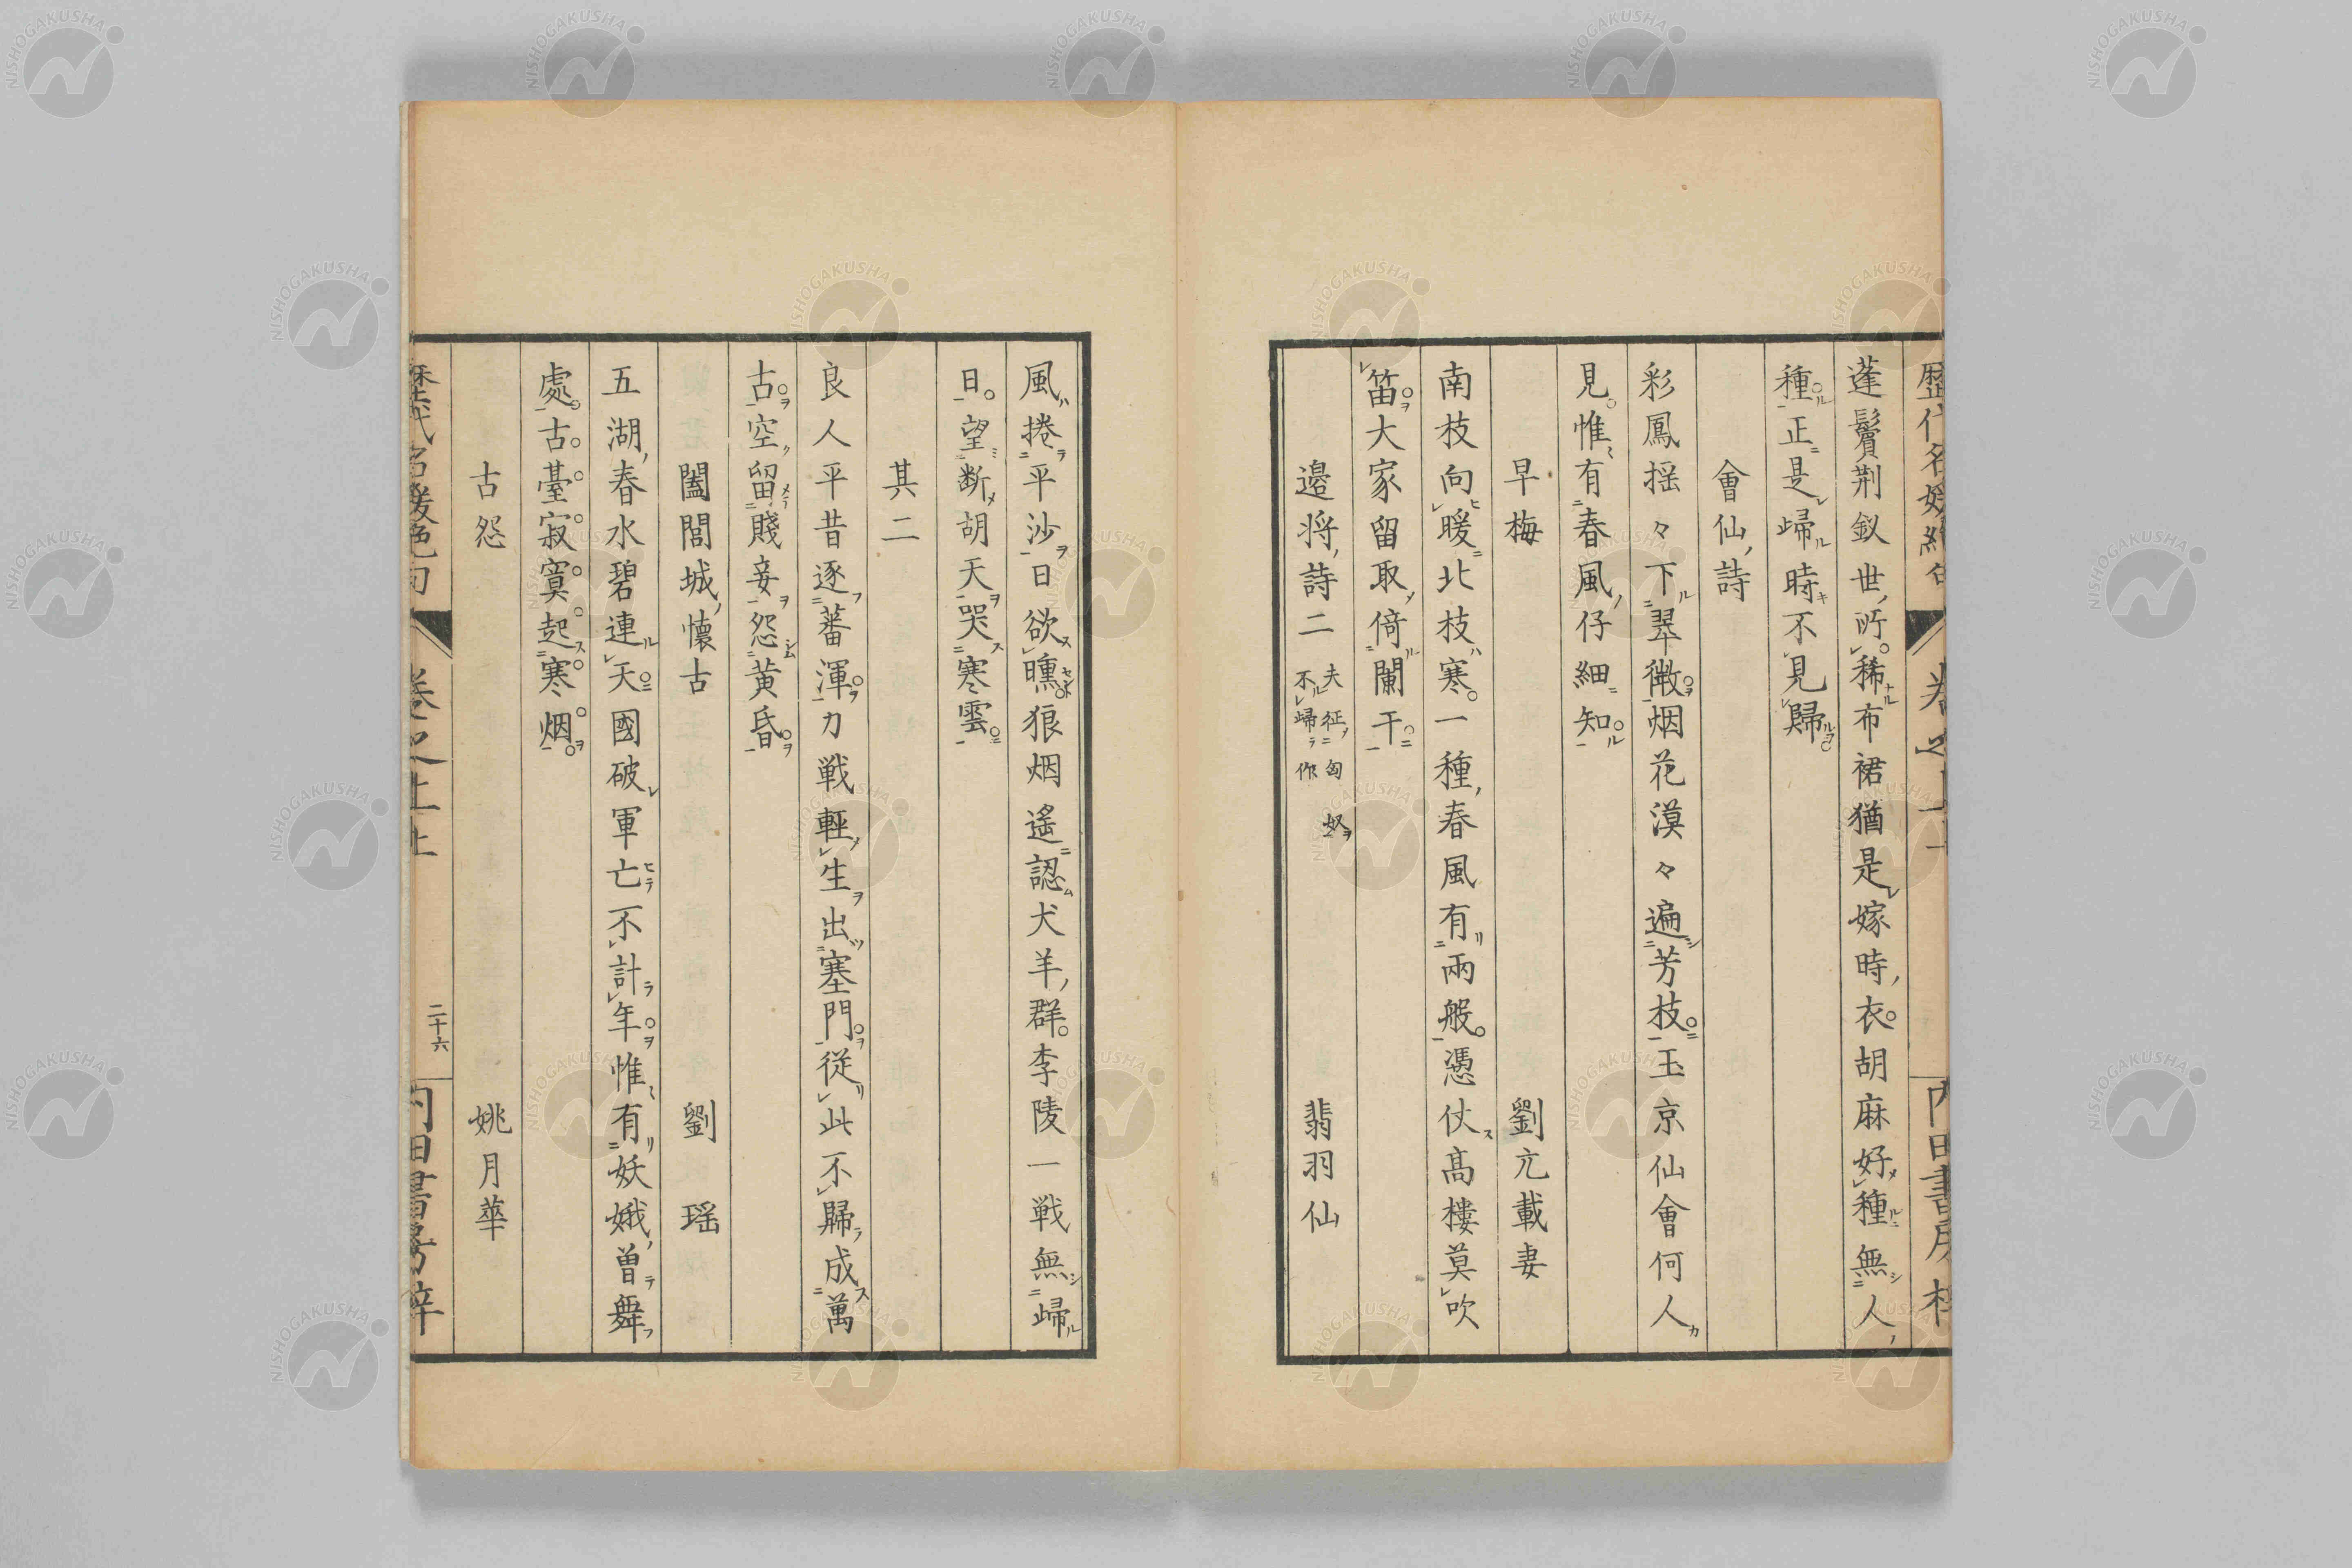 歴代名媛絶句 卷之上 内田書房梓
蓬鬢荊釵世所稀布裙猶是嫁時衣胡麻好種無人
種正是歸時不見歸
會仙詩
彩鳳揺々下翠微烟花漠々遍芳枝玉京仙會何人
見惟有春風仔細知
早梅 劉元載妻
南枝向暖北枝寒一種春風有兩般憑仗高樓莫吹
笛大家留取倚闌干
邉将詩二 夫征匈奴不歸作 翡羽仙
風捲平沙日欲曛狼烟遙認犬羊群李陵一戦無歸
日望断胡天哭寒雲
其二
良人平昔逐蕃渾力戦輕生出塞門従此不歸成萬
古空留賤妾怨黄昏
闔閭城懐古 劉瑶
五湖春水碧連天國破軍亡不計年惟有妖娥曽舞
處古臺寂寞起寒烟
古怨 姚月華
歴代名媛絶句 卷之上 二十六 内田書房梓